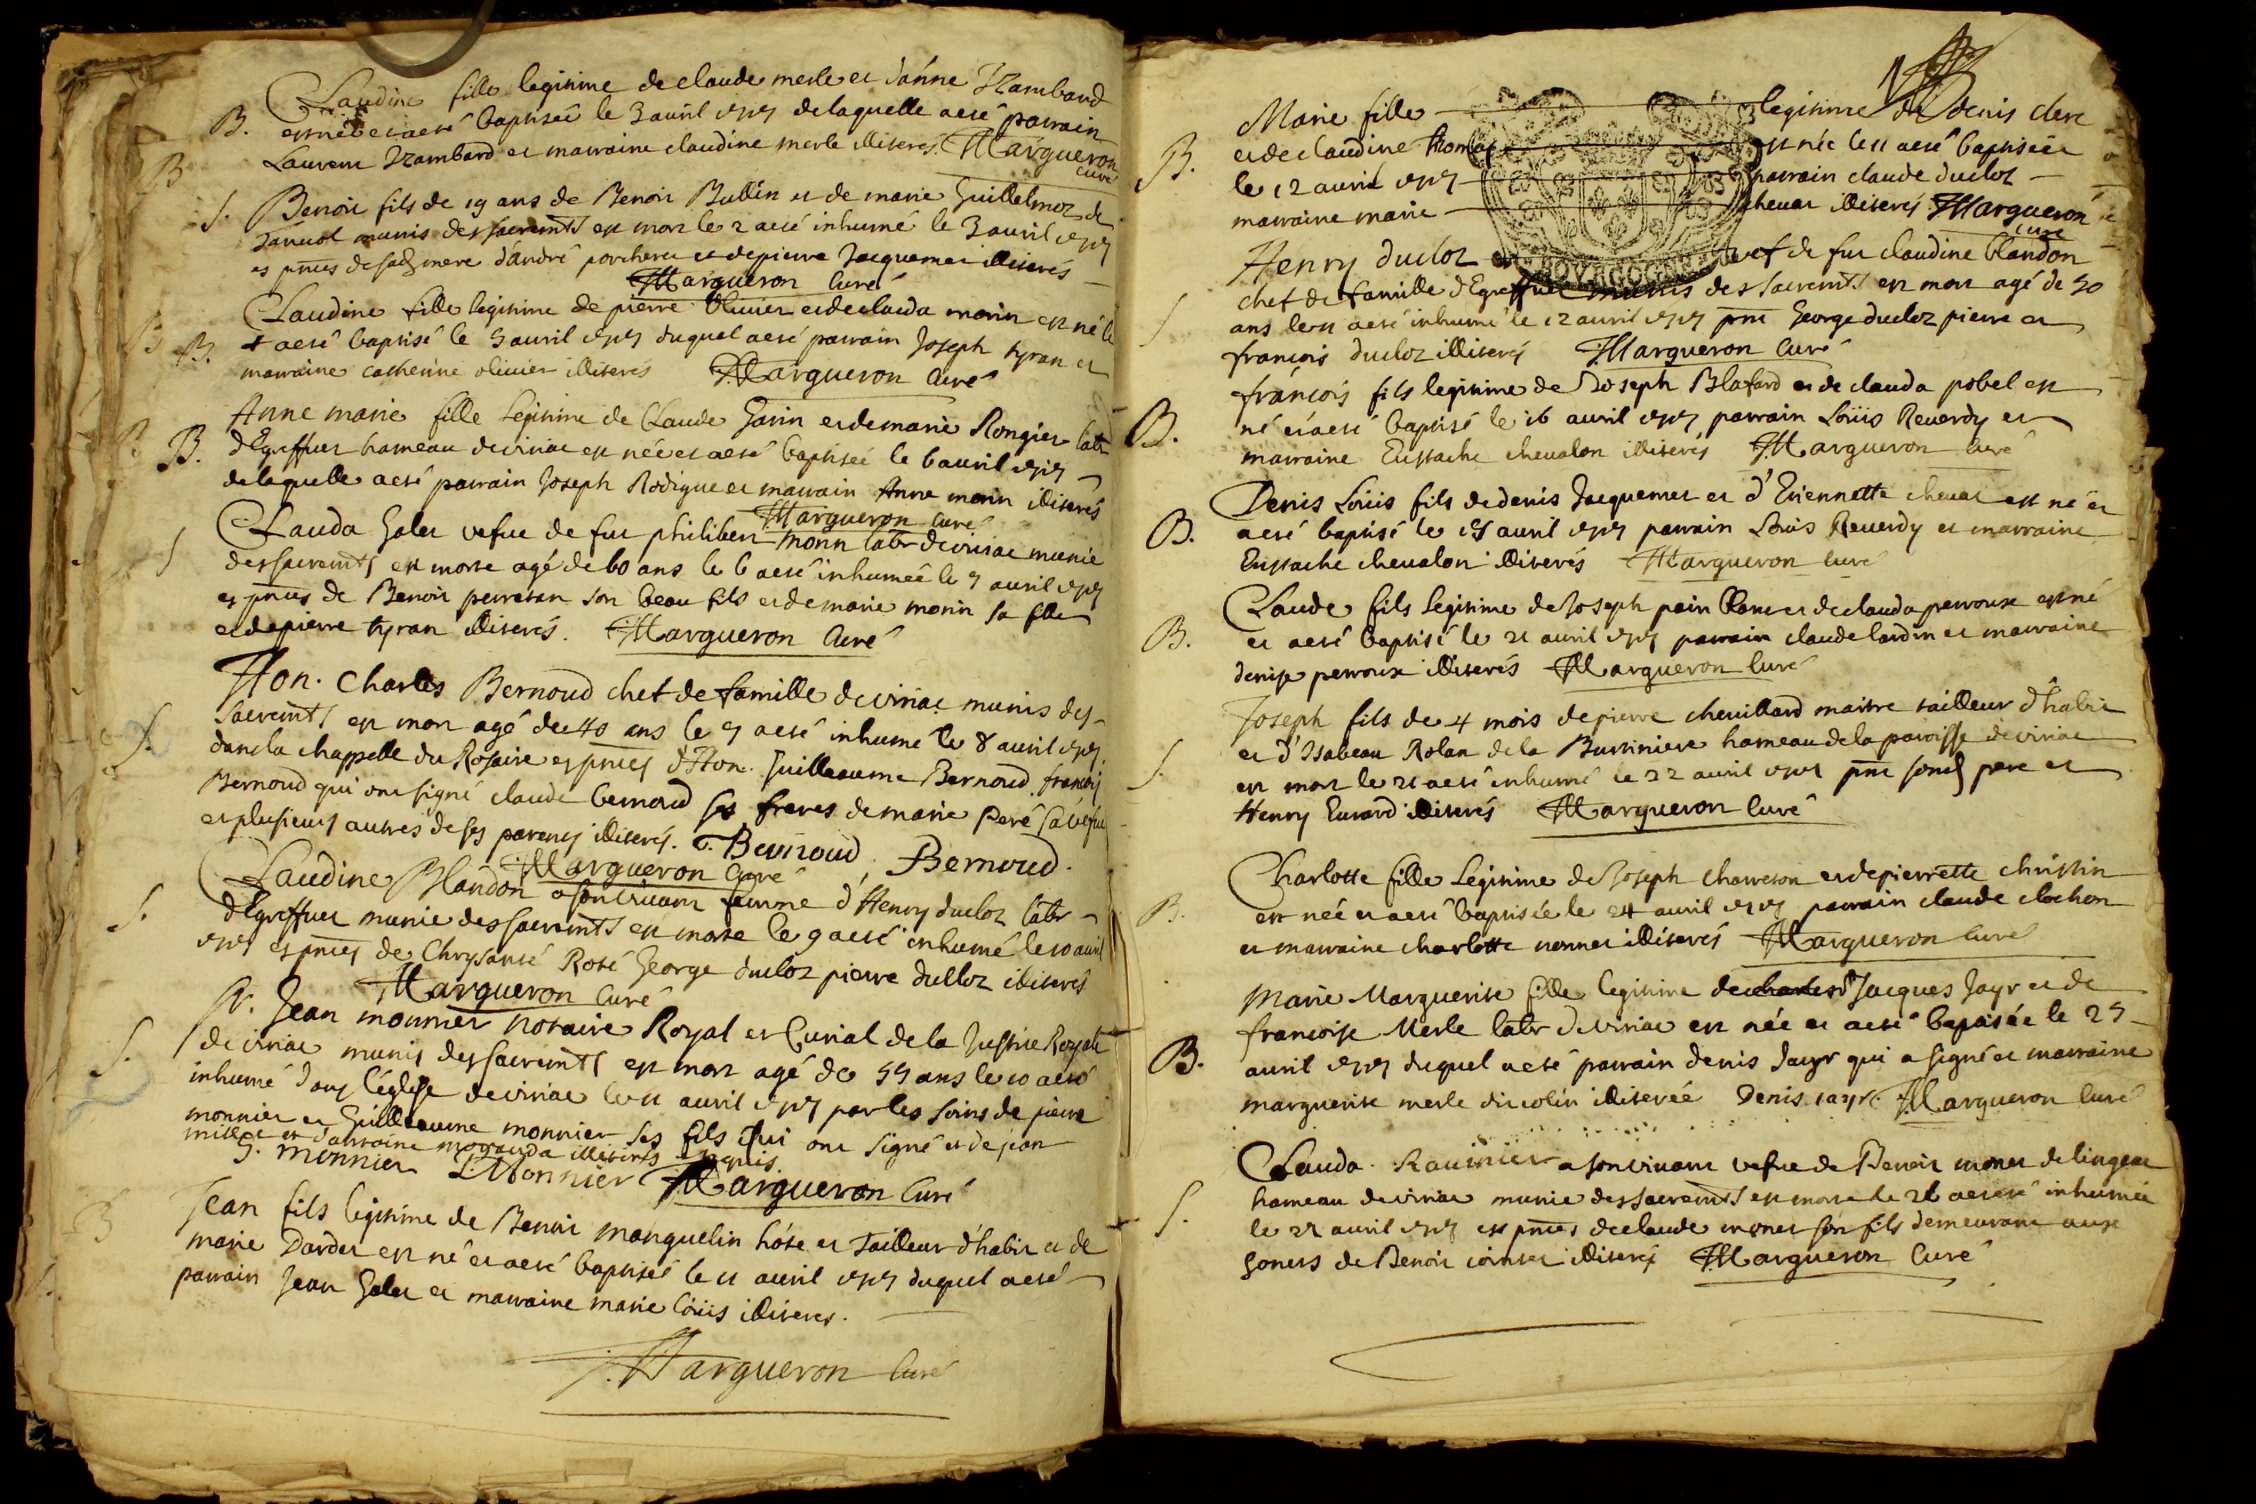 Claudine fille legitime de claude merle et d'anne
B. est née et a eté baptisée le 3 avril 1717 de laquelle a eté parrain
Laurent et marraine claudine merle illiterés. Margueron
curé
S. Benoit fils de 19 ans de Benoit Bullin et de marie Guillelmoz de
munis des sacremts est mort le 2 a eté inhumé le 3 avril 1717
es pnces de sad. mere d'andré porcheret et de pierre Jacquemet illiterés
Margueron Curé
Claudine fille legitime de pierre olivier et de clauda morin est né le
B. 4 a eté baptisé le 5 avril 1717 duquel a eté parrain Joseph tyran et
marraine catherine olivier illiterés Margueron Curé
Anne marie fille Legitime de Claude Garin et de marie Rongier labr
B. d'Egreffuet hameau de viriac est née et a eté baptisée le 6 avril 1717
de laquelle a eté parrain Joseph Rodigue et marrain Anne morin illiterés
Margueron Curé
Clauda Galet vefue de fut philibert morin labr de viriac munie
S des sacremts est morte agé de 60 ans le 6 a eté inhumeé le 7 avril 1717
es pnces de Benoit perretan son beau fils et de marie morin sa fille
et de pierre tyran illiterés. Margueron Curé
Hon. Charles Bernoud chef de famille de viriac munis des
S. sacremts est mort agé de 40 ans le 7 a eté inhumé le 8 avril 1717
dans la chappelle du Rosaire es pnces d'Hon. Guilleaume Bernoud francois
Bernoud qui ont signé claude bernoud ses freres de marie Peré sa vefue
et plusieurs autres de ses parents illiterés. Bernoud. Bernoud.
Margueron Curé
Claudine Blandon a son vivant femme d'Henry ducloz labr
S. d'Egreffuet munie des sacremts est morte le 9 a eté inhumé le 10 avril
1717 es pnces de Chrysante Roté George ducloz pierre duclloz illiterés
Margueron Curé
Sr. Jean monnier notaire Royal et Curial de la Justice Royale
S. de viriac munis des sacremts est mort agé de 55 ans le 10 a eté
inhumé dans l'église de viriac le 11 avril 1717 par les soins de pierre
monnier et Guilleaume monnier ses fils qui ont signé et de jean
millet et d'antoine morauda illiterés requis.
G. monnier Monnier Margueron Curé
B Jean fils legitime de Benoit manguelin hôte et Tailleur d'habit et de
marie Dardet est né et a eté baptisée le 11 avril 1717 duquel a eté
parrain Jean Galet et marraine marie loüis illiterés.
Margueron Curé
Marie fille legitime de denis clerc
B. et de claudine est née le 11 a eté baptisée
le 12 avril 1717 parrain claude ducloz
marraine marie chevat illiterés Margueron
curé
Henry ducloz vef de fut claudine blandon
BOVRGOGNE
S chef de famille d'Egreffuet munis des sacremts est mort agé de 50
ans le 11 a eté inhumé le 12 avril 1717 pnt George ducloz pierre et
francois ducloz illiterés Margueron Curé
francois fils legitime de Joseph Blafard et de clauda pobel est
B. né et a eté baptisé le 16 avril 1717 parrain Loüis Reverdy et
marraine Eustache chevalon illiterés Margueron Curé
Denis Loüis fils de denis Jacquemet et d'Etiennette chevat est né et
B. a eté baptisé le avril 1717 parrain Loüis Reverdy et marraine
Eustache chevalon illiterés Margueron Curé
Claude fils legitime de Joseph pain blanc et de clauda perroux est né
B. et a eté baptisé le 21 avril 1717 parrain claude lardin et marraine
denise perroux illiterés Margueron Curé
Joseph fils de 4 mois de pierre chevillard maitre tailleur d'habit
S. et d'Isabeau Rolan de la Burtiniere hameau de la paroisse de viriac
est mort le 21 a eté inhumé le 22 avril 1717 pnt sond. pere et
Henry Evrard illiterés Margueron Curé
Charlotte fille Legitime de Joseph charreton et de pierrette christin
B. est née et a eté baptisée le 24 avril 1717 parrain claude clochon
et marraine charlotte nonnet illiterés Margueron Curé
Marie Marguerite fille legitime de Jacques Jayr et de
francoise Merle labr de viriac est née et a eté baptisée le 25
B. avril 1717 duquel a eté parrain denis Jayr qui a signé et marraine
marguerite merle dit colin illiterée Denis Jayr. Margueron Curé
Clauda a son vivant vefue de Benoit monet de lingeat
S. hameau de viriac munie des sacremts est morte le 26 a eté inhumée
le 27 avril 1717 es pnces de claude monet son fils demeurant aux
Gonets de Benoit illiterés Margueron Curé